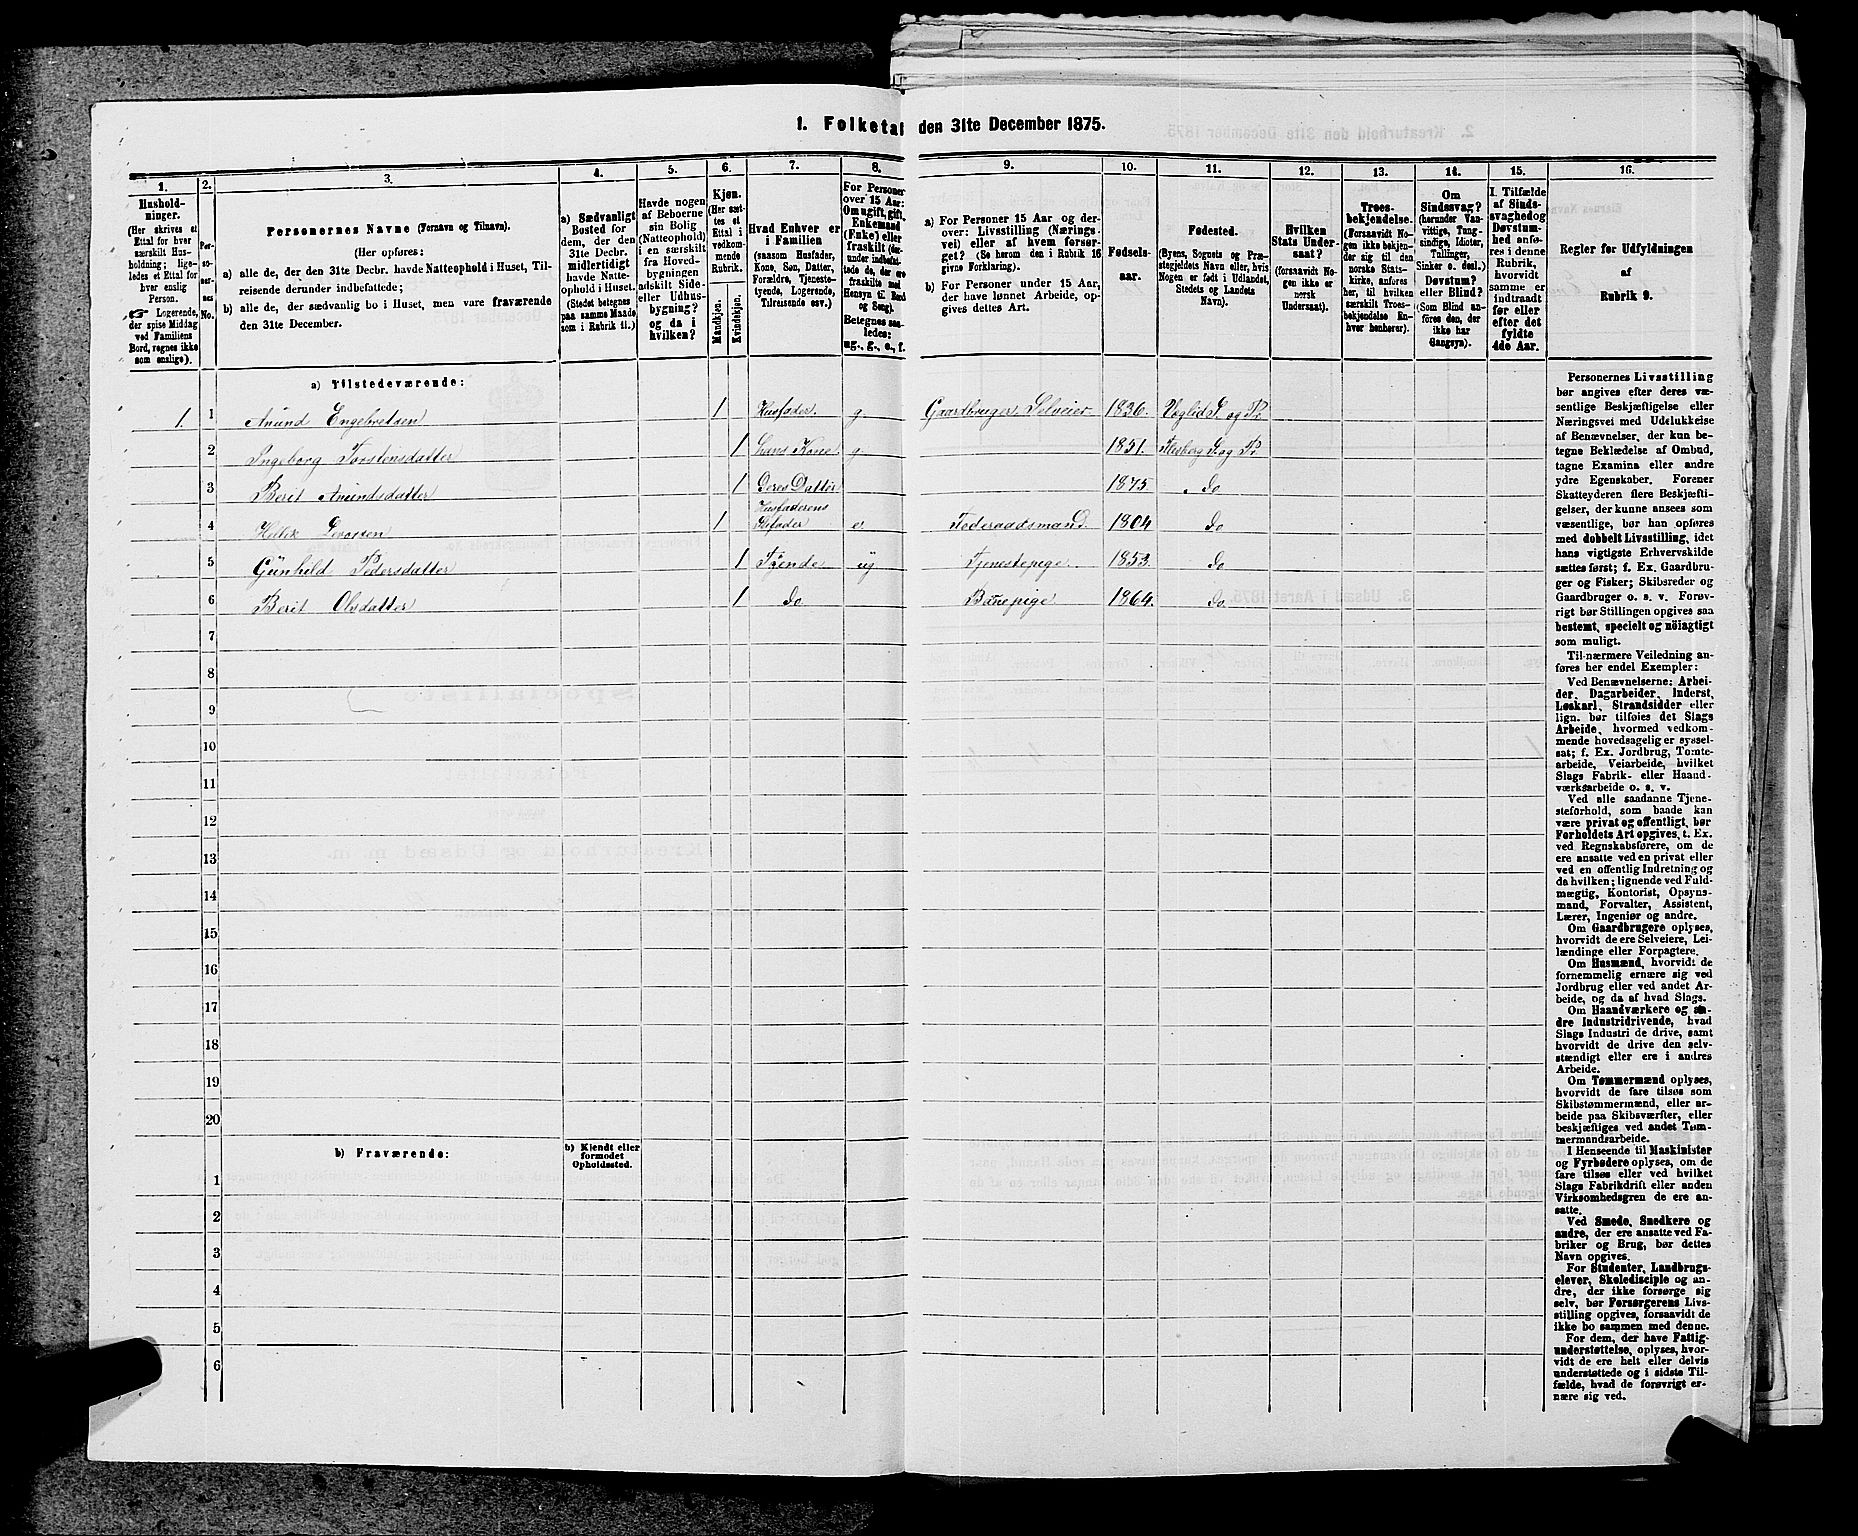 1. Folketal den 31te December 1875.
1.
Hushold-
ninger.
(Her skrives et
Ettal for hver
særskilt Hus-
holdning; lige-
ledes et Ettal for
hver enslig
Person.
Logerende,
der spise Middag
ved Familiens
Bord, regnes ikke
som enslige).
2.
Per-
so-
ner-
nes
No.
3.
Personernes Navne (Fornavn og Tilnavn).
(Her opføres:
a) alle de, der den 31te Decbr. havde Natteophold i Huset, Til-
reisende derunder indbefattede;
b) alle de, der sædvanlig bo i Huset, men vare fraværende
den 31te December.
4.
a) Sædvanligt
Bosted for
dem, der den
31te Decbr.
midlertidigt
havde Natte-
ophold i Huset.
(Stedet betegnes
paa samme Maade
som i Rubrik 11.)
5.
Havde nogen
af Beboerne
sin Bolig
(Natteophold)
i en særskilt
fra Hoved-
bygningen
adskilt Side-
eller Udhus-
bygning?
og da i
hvilken?
6.
Kjøn.
(Her sæt-
tes et
Ettal i
vedkom-
mende
Rubrik.
Mandkjøn.
Kvindekjøn.
7.
Hvad Enhver er
i Familien
(saasom Husfader,
Kone, Søn, Datter,
Forældre, Tjeneste-
tyende, Logerende,
Tilreisende osv.)
8.
For Personer
over 15 Aar:
Om ugift, gift,
Enkemand
(Enke) eller
fraskilt (der-
under indbefat-
tede de, der ere
fraskilte med
Hensyn til Bord
og Seng).
Betegnes saa-
ledes:
ug., g., e., f.
9.
a) For Personer 15 Aar og der-
over: Livsstilling (Nærings-
vei) eller af hvem forsør-
get? (Se herom den i Rubrik 16
givne Forklaring).
b) For Personer under 15 Aar,
der have lønnet Arbeide, op-
gives dettes Art.
10.
Fødsels-
aar.
11.
Fødested.
(Byens, Sognets og Præ-
stegjeldets Navn eller, hvis
Nogen er født i Udlandet,
Stedets og Landets
Navn).
12.
Hvilken
Stats Under-
saat?
(forsaavidt No-
gen ikke er
norsk
Undersaat).
13.
Troes-
bekjendelse.
(Forsaavidt No-
gen ikke bekjen-
der sig til den
norske Stats-
kirke, anføres
her, til hvilken
særskilt Troes-
bekjendelse En-
hver henhører).
14.
Om
Sindssvag?
(herunder Van-
vittige, Tung-
sindige, Idioter,
Tullinger,
Sinker o. desl.)
Døvstum?
eller Blind?
(Som Blind an-
føres den, der
ikke har
Gangsyn).
15.
I Tilfælde
af Sinds-
svaghed og
Døvstum-
hed anfø-
res i denne
Rubrik,
hvorvidt
samme er
indtraadt
før eller
efter det
fyldte
4de Aar.
16.
Regler for Udfyldningen
af
Rubrik 9.
a) Tilstedeværende:
1. 1 Anund Engebretsen 1 Husfader. g. Gaardbruger Selveier 1836. Veglid S. og Pr.
2 Ingeborg Torstensdatter 1 hans Kone g. 1851. Flesberg S. og Pr.
3 Berit Anundsdatter 1 Deres Datter 1875. do
Husfaderens
4 1 Stiffader e Føderaadsmand 1804 do
5 Gunhild Pedersdatter 1 Tjende ug Tjenestepige. 1853. do
6 Berit Olsdatter 1 do Barnepige 1864. do
7
8
9
10
11
12
13
14
15
16
17
18
19
20
b) Fraværende:
b) Kjendt eller
formodet
Opholdssted.
1
2
3
4
5
6
Personernes Livsstilling
bør angives efter deres væ-
sentlige Beskjæftigelse eller
Næringsvei med Udelukkelse
af Benævnelser, der kun be-
tegne Beklædelse af Ombud,
tagne Examina eller andre
ydre Egenskaber. Forener
Skatteyderen flere Beskjæfti-
gelser, der kunne ansees som
væsentlige, bør han opføres
med dobbelt Livsstilling, idet
hans vigtigste Erhvervskilde
sættes først; f. Ex. Gaardbru-
ger og Fisker; Skibsreder og
Gaardbruger o. s. v. Forøv-
rigt bør Stillingen opgives saa
bestemt, specielt og nöiagtigt
som muligt.
Til nærmere Veiledning an-
føres her endel Exempler:
Ved Benævnelserne: Arbei-
der, Dagarbeider, Inderst,
Løskarl, Strandsidder eller
lign. bør tilføies det Slags
Arbeide, hvormed vedkom-
mende hovedsagelig er syssel-
sat; f. Ex. Jordbrug, Tomte-
arbeide, Veiarbeide, hvilket
Slags Fabrik- eller Haand-
værksarbeide o. s. v.
Ved alle saadanne Tjene-
steforhold, som baade kan
være privat og offentligt, bør
Forholdets Art opgives, t. Ex.
ved Regnskabsførere, om de
ere ansatte ved en privat eller
ved en offentlig Indretning og
da hvilken; lignende ved Fuld-
mægtig, Kontorist, Opsyns-
mand, Forvalter, Assistent,
Lærer, Ingeniør og andre.
Om Gaardbrugere oplyses,
hvorvidt de ere Selveiere, Lei-
lændinge eller Forpagtere.
Om Husmænd, hvorvidt de
fornemmelig ernære sig ved
Jordbrug eller ved andet Ar-
beide, og da af hvad Slags.
Om Haandværkere og an-
dre Industridrivende, hvad
Slags Industri de drive, samt
hvorvidt de drive den selv-
stændigt eller ere i andres
Arbeide.
Om Tømmermænd oplyses,
hvorvidt de fare tilsøs som
Skibstømmermænd, eller ar-
beide paa Skibsværfter, eller
beskjæftiges ved andet Tøm-
mermandsarbeide.
I Henseende til Maskinister
og Fyrbødere oplyses, om de
fare tilsøs eller ved hvilket
Slags Fabrikdrift eller anden
Virksomhedsgren de ere an-
satte.
Ved Smede, Snedkere og
andre, der ere ansatte ved Fa-
briker og Brug, bør dettes
Navn opgives.
For Studenter, Landbrugs-
elever, Skoledisciple og an-
dre, der ikke forsørge sig
selv, bør Forsørgerens Livs-
stilling opgives, forsaavidt de
ikke bo sammen med denne.
For dem, der have Fattig-
understøttelse, oplyses, hvor-
vidt de ere helt eller delvis
understøttede og i sidste Til-
fælde, hvad de forøvrigt er-
nære sig ved.